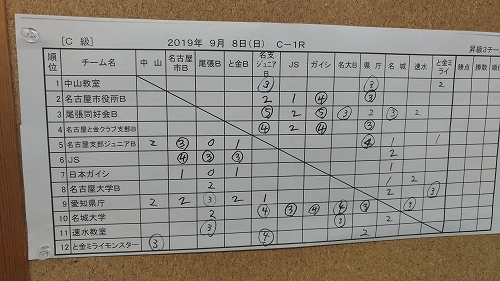 [C 級] 2019年 9月 8日(日) C-1R 昇級3チー
順位 チーム名 中山 名古屋市役B 尾張B と金B 名支ジュニアB JS ガイシ 名大B 県庁 名城 速水 と金ミライ 勝点 勝数 順位
1 中山教室 ③ ③ 2
2 名古屋市役所B 2 1 ④ ③
3 尾張同好会B ⑤ 2 ⑤ ③ 2 ③ 2
4 名古屋と金クラブ支部B ④ 2 ④ ③
5 名古屋支部ジュニアB 2 ③ 0 1 ④ 1 1
6 JS ④ ③ ③ 2
7 日本ガイシ 1 0 1 1
8 名古屋大学B 2 2 ③
9 愛知県庁 2 2 ③ 2 1 ③
10 名城大学 2 ④ ③ ④ ③
11 速水教室 ③ ③ 2
12 と金ミライモンスター ③ ④ 2